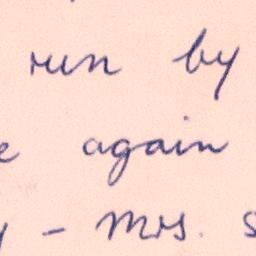 run by
again
- Mrs.